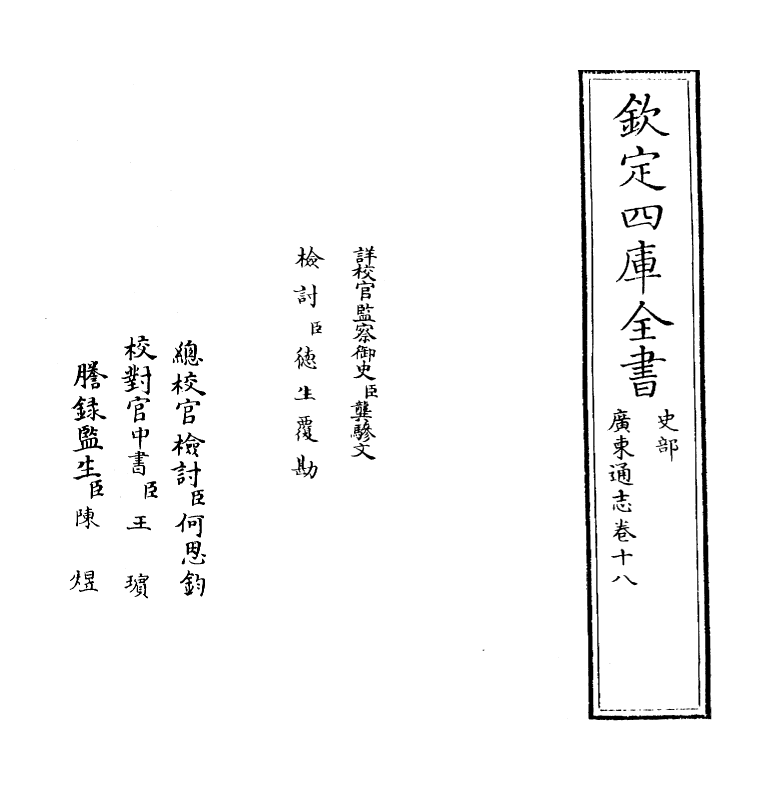 欽定四庫全書
史部
廣東通志卷十八
詳校官監察御史臣龔驂文
檢討臣德生覆勘
總校官檢討臣何思鈞
校對官中書臣王璸
謄錄監生臣陳煜